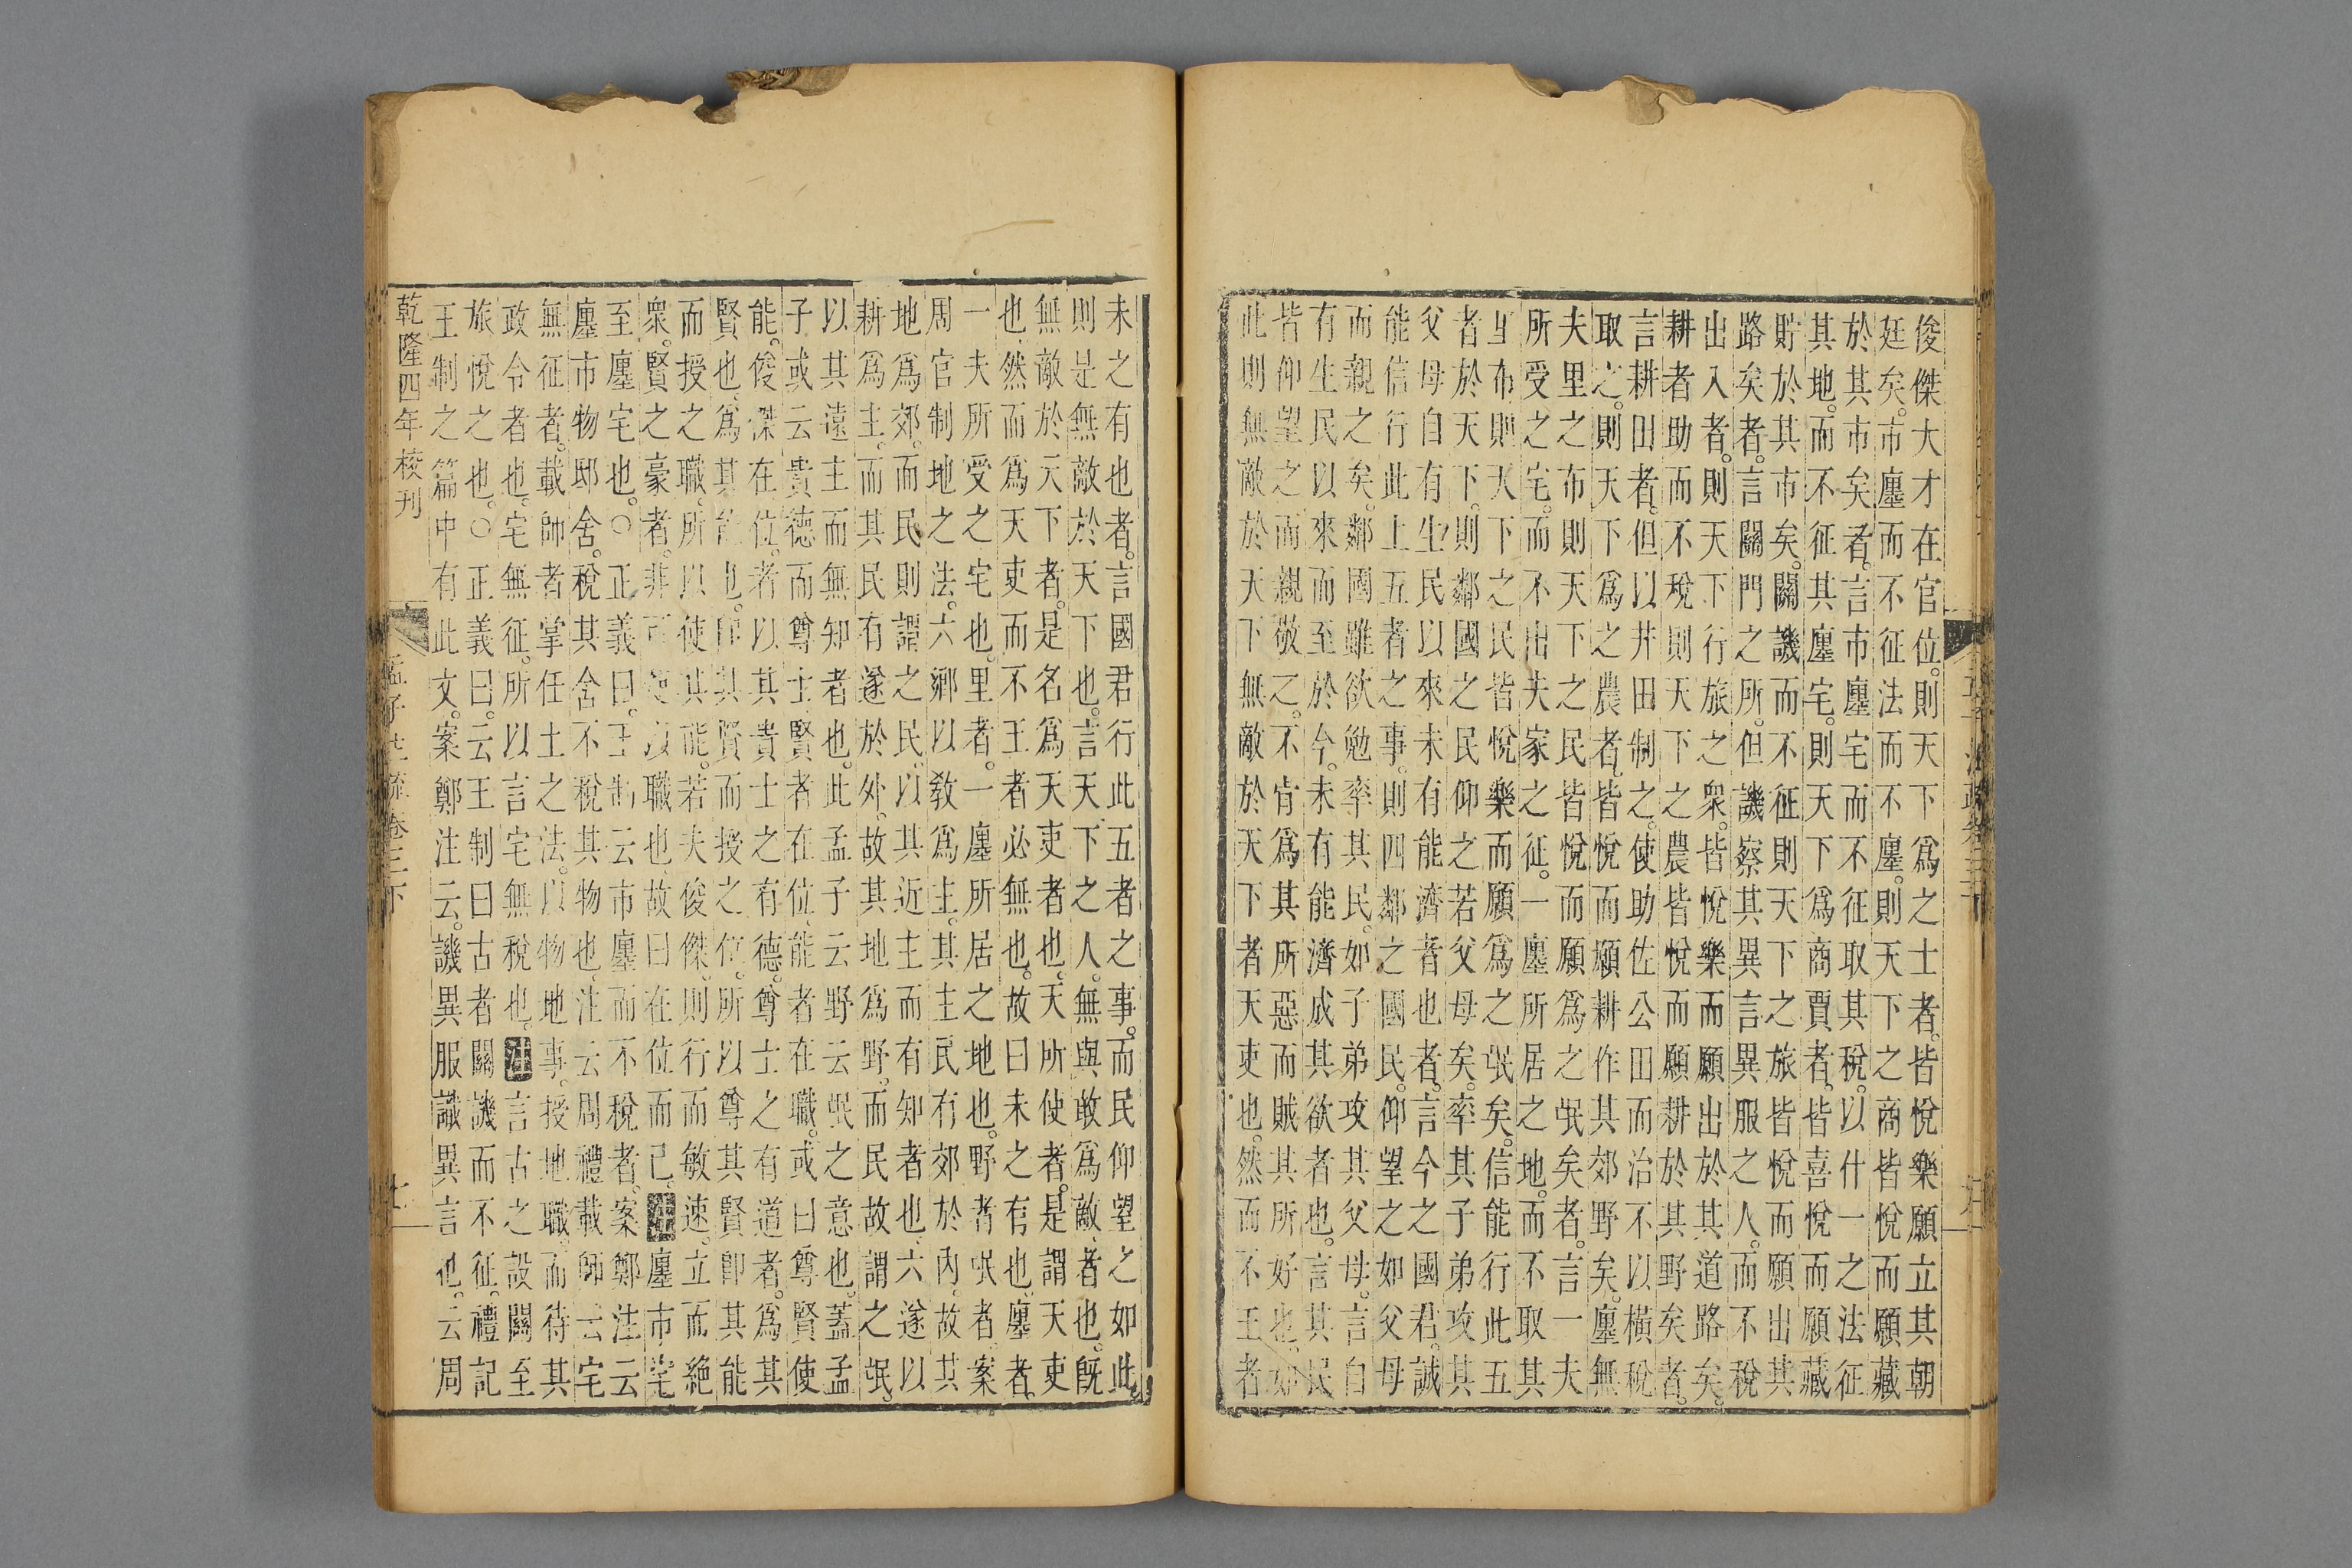 俊傑大才在官位。則天下爲之士者。皆悅樂願立其朝
廷矣。市廛而不征法而不廛。則天下之商皆悅而願藏
於其市矣者。言市廛宅而不征取其稅。以什一之法征
其地。而不征其廛宅。則天下爲商賈者。皆喜悅而願藏
貯於其市矣。關譏而不征則天下之旅皆悅而願出其
路矣者。言關門之所。但譏察其異言異服之人。而不稅
出入者。則天下行旅之衆。皆悅樂而願出於其道路矣。
耕者助而不稅則天下之農皆悅而願耕於其野矣者。
言耕田者。但以井田制之。使助佐公田而治不以橫稅
取之。則天下爲之農者。皆悅而願耕作其郊野矣。廛無
夫里之布則天下之民皆悅而願爲之氓矣者。言一夫
所受之宅。而不出夫家之征。一廛所居之地。而不取其
里布則天下之民皆悅樂而願爲之氓矣。信能行此五
者於天下。則鄰國之民仰之若父母矣。率其子弟攻其
父母自有生民以來未有能濟者也者。言今之國君。誠
能信行此上五者之事。則四鄰之國民。仰望之如父母
而親之矣。鄰國雖欲勉率其民。如子弟攻其父母。言自
有生民以來而至於今。未有能濟成其欲者也。言其民
皆仰望之而親敬之。不肯爲其所惡而賊其所好也。如
此則無敵於天下無敵於天下者天吏也。然而不王者
未之有也者。言國君行此五者之事。而民仰望之如此
則是無敵於天下也。言天下之人。無與敢爲敵者也。旣
無敵於天下者。是名爲天吏者也。天所使者。是謂天吏
也。然而爲天吏而不王者必無也。故曰未之有也。廛者。
一夫所受之宅也。里者。一廛所居之地也。野者氓者。案
周官制地之法。六鄉以敎爲主。其主民有郊於內。故其
地爲郊。而民則謂之民。以其近主而有知者也。六遂以
耕爲主。而其民有遂於外。故其地爲野。而民故謂之氓。
以其遠主而無知者也。此孟子云野云氓之意也。蓋孟
子或云貴德而尊士賢者在位能者在職。或曰尊賢使
能。俊傑在位。者以其貴士之有德。尊士之有道者。爲其
賢也。爲其能也。卽其賢而授之位。所以尊其賢卽其能
而授之職。所以使其能。若夫俊傑。則行而敏速。立而絕
衆。賢之豪者。非可使以職也。故曰在位而已。注廛市宅
至廛宅也。○正義曰。王制云市廛而不稅者。案鄭注云
廛市物邸舍。稅其舍不稅其物也。注云周禮載師云宅
無征者。載師者掌任土之法。以物地事。授地職。而待其
政令者也。宅無征。所以言宅無稅也。注言古之設關至
旅悅之也。○正義曰。云王制曰古者關譏而不征。禮記
王制之篇中有此文。案鄭注云。譏異服識異言也。云周
乾隆四年校刊
孟子注疏卷三下